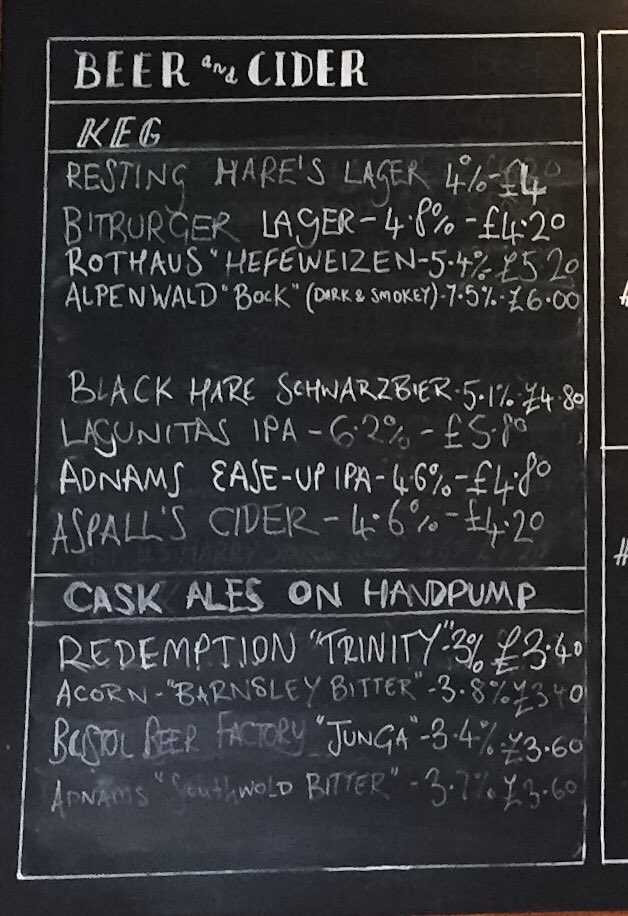 BEER and CIDER
KEG
RESTING HARE'S LAGER 4%-£4
BITBURGER LAGER-4.8%-£4.20
ROTHAUS "HEFEWEIZEN-5.4% £5.20
ALPENWALD "BOCK" (DARK & SMOKEY)-7.5%-£6.00
BLACK HARE SCHWARZBIER-5.1% £4.80
LAGUNITAS IPA-6.2%-£5.80
ADNAMS EASE-UP IPA-4.6%-£4.80
ASPALL'S CIDER-4.6%-£4.20
CASK ALES ON HANDPUMP
REDEMPTION "TRINITY"-3% £3.40
ACORN-"BARNSLEY BITTER"-3.8% £3.40
BRISTOL BEER FACTORY "JUNGA"-3.4% £3.60
ADNAMS "SOUTHWOLD BITTER"-3.7% £3.60